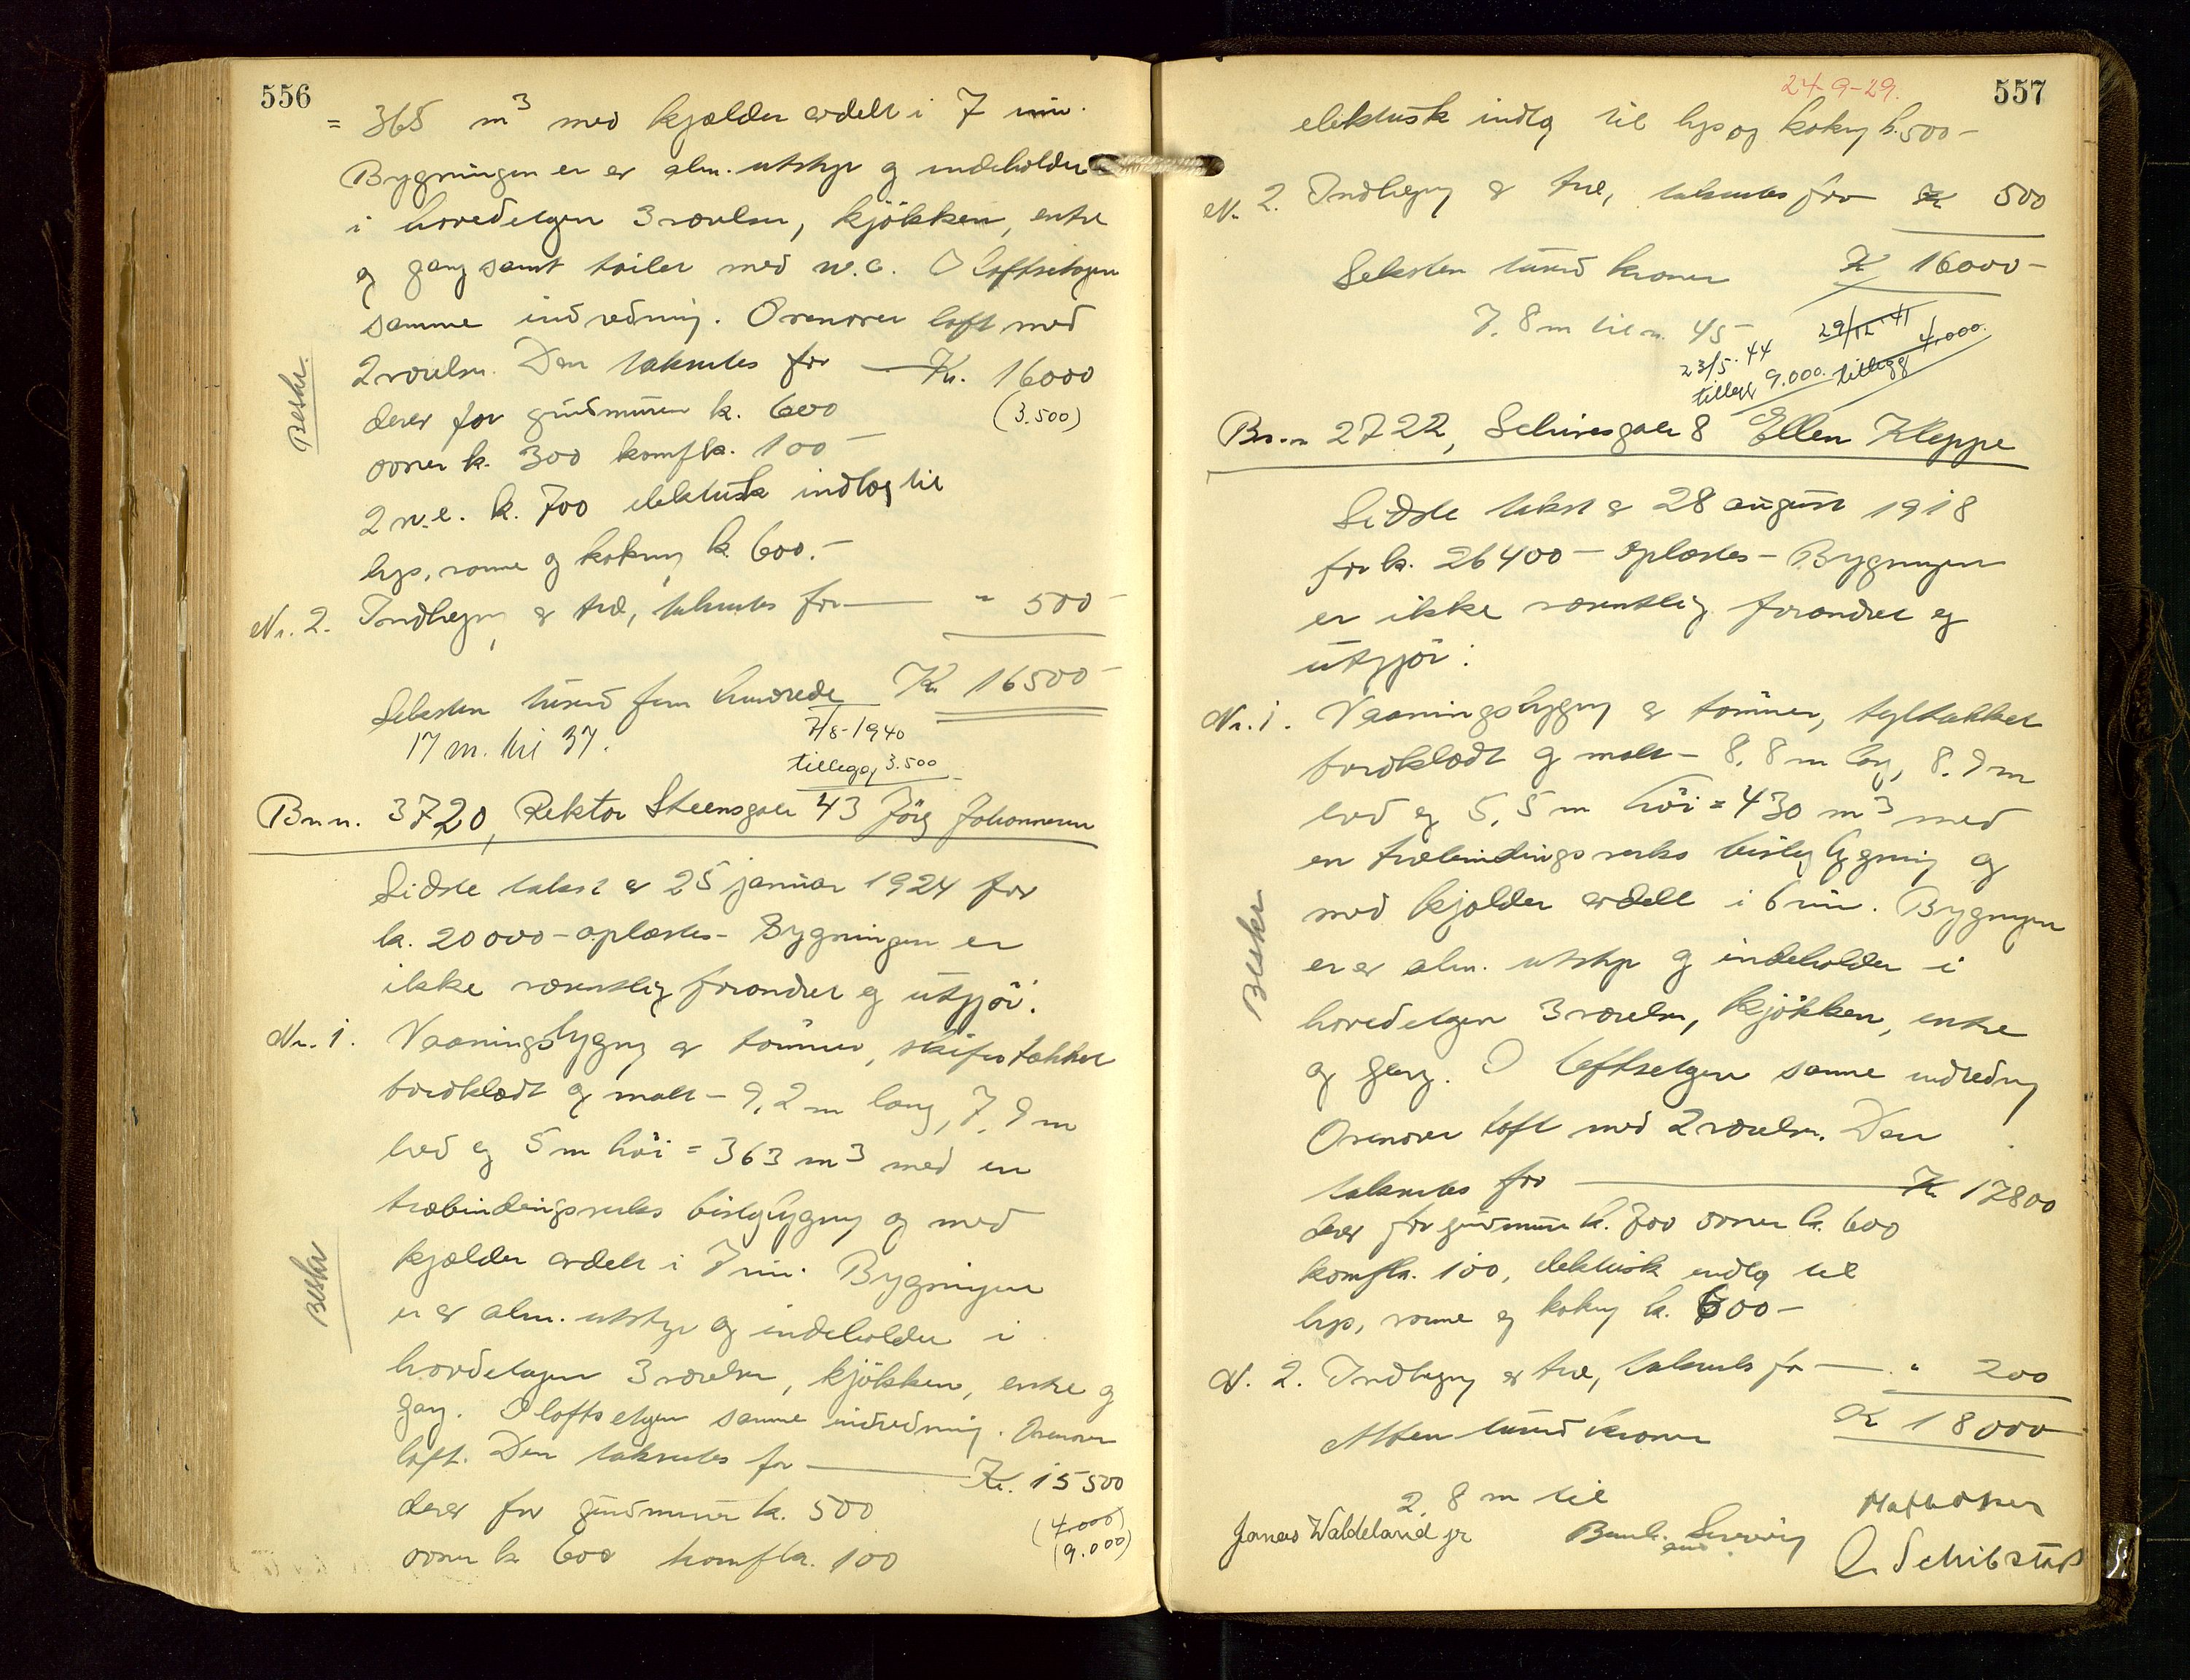 556
= 365 m³ med kjælder avdelt i 7 rum.
Bygningen er av alm. utstyr og indeholder
i hovedetagen 3 værelser, kjökken, entre
og gang samt toilet med w.c. I loftsetagen
samme indredning. Ovenover loft med
2 værelser. Den takseres for Kr. 16000
Beskr.
derav for grundmuren kr. 600 (3.500)
ovner kr. 300 komfkr. 100 -
2 w.c. kr. 700 elektrisk indlæg til
lys, varme og kokning kr. 600.-
Nr. 2. Indhegn. av træ, takseres for " 500 -
Seksten tusind fem hundrede Kr 16500 -
17 m. til 37.
7/8-1940
tillegg 3.500
Br.nr. 3720, Rektor Steensgate 43 Jörg Johannesen
Sidste takst av 25 januar 1924 for
kr. 20000 - oplæstes - Bygningen er
ikke væsentlig forandret og utgjör:
Nr. 1. Vaaningsbygning av tömmer, skifertækket
bordklædt og malt - 9,2 m lang, 7,9 m
bred og 5 m höi = 363 m3 med en
træbindingsverks bislagbygning og med
kjælder avdelt i 7 rum. Bygningen
Beskr
er av alm. utstyr og indeholder i
hovedetagen 3 værelser, kjökken, entre og
gang. I loftsetagen samme indredning. Ovenover
loft. Den takseres for Kr. 15500
derav for grundmuren kr. 500 (4.000)
ovner kr 600 komfkr. 100 (9.000)
24-9-29.
557
elektrisk indlæg til lys og kokning kr. 500 -
Nr. 2. Indhegning av træ, takseres for Kr 500
Seksten tusind kroner Kr 16000 -
7,8 m til nr. 45 -
29/12-41
tillegg 4.000.
23/5-44
tillegg 9.000.
Br.nr 2722, Schivesgate 8 Ellen Kleppe
Sidste takst av 28 august 1918
for kr. 26400 - oplæstes - Bygningen
er ikke væsentlig forandret og
utgjör:
Nr. 1. Vaaningsbygning av tömmer, tegltækket
bordklædt og malt - 8,8 m lang, 8,9 m
bred og 5,5 m höi = 430 m3 med
en træbindingsverks bislagbygning og
med kjælder avdelt i 6 rum. Bygningen
Beskr
er av alm. utstyr og indeholder i
hovedetagen 3 værelser, kjökken, entre
og gang. I loftsetagen samme indredning
Ovenover loft med 2 værelser. Den
takseres for Kr 17800
derav for grundmuren kr. 700 ovner kr. 600
komfkr. 100, elektrisk indlæg til
lys, varme og kokning kr. 600 -
N. 2. Indhegning av træ, takseres for " 200
Atten tusind kroner Kr 18000
2,8 m til
Jonas Waldeland jr
Schibstad